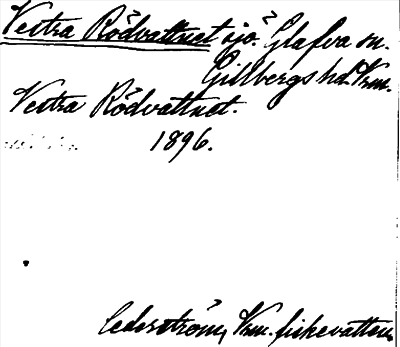 Vestra Rödvattnet sjö. Glafva sn.
Gillbergs hd. Vrm.
Vestra Rödvattnet.
1896.
Cederström, Vrm. fiskevatten,